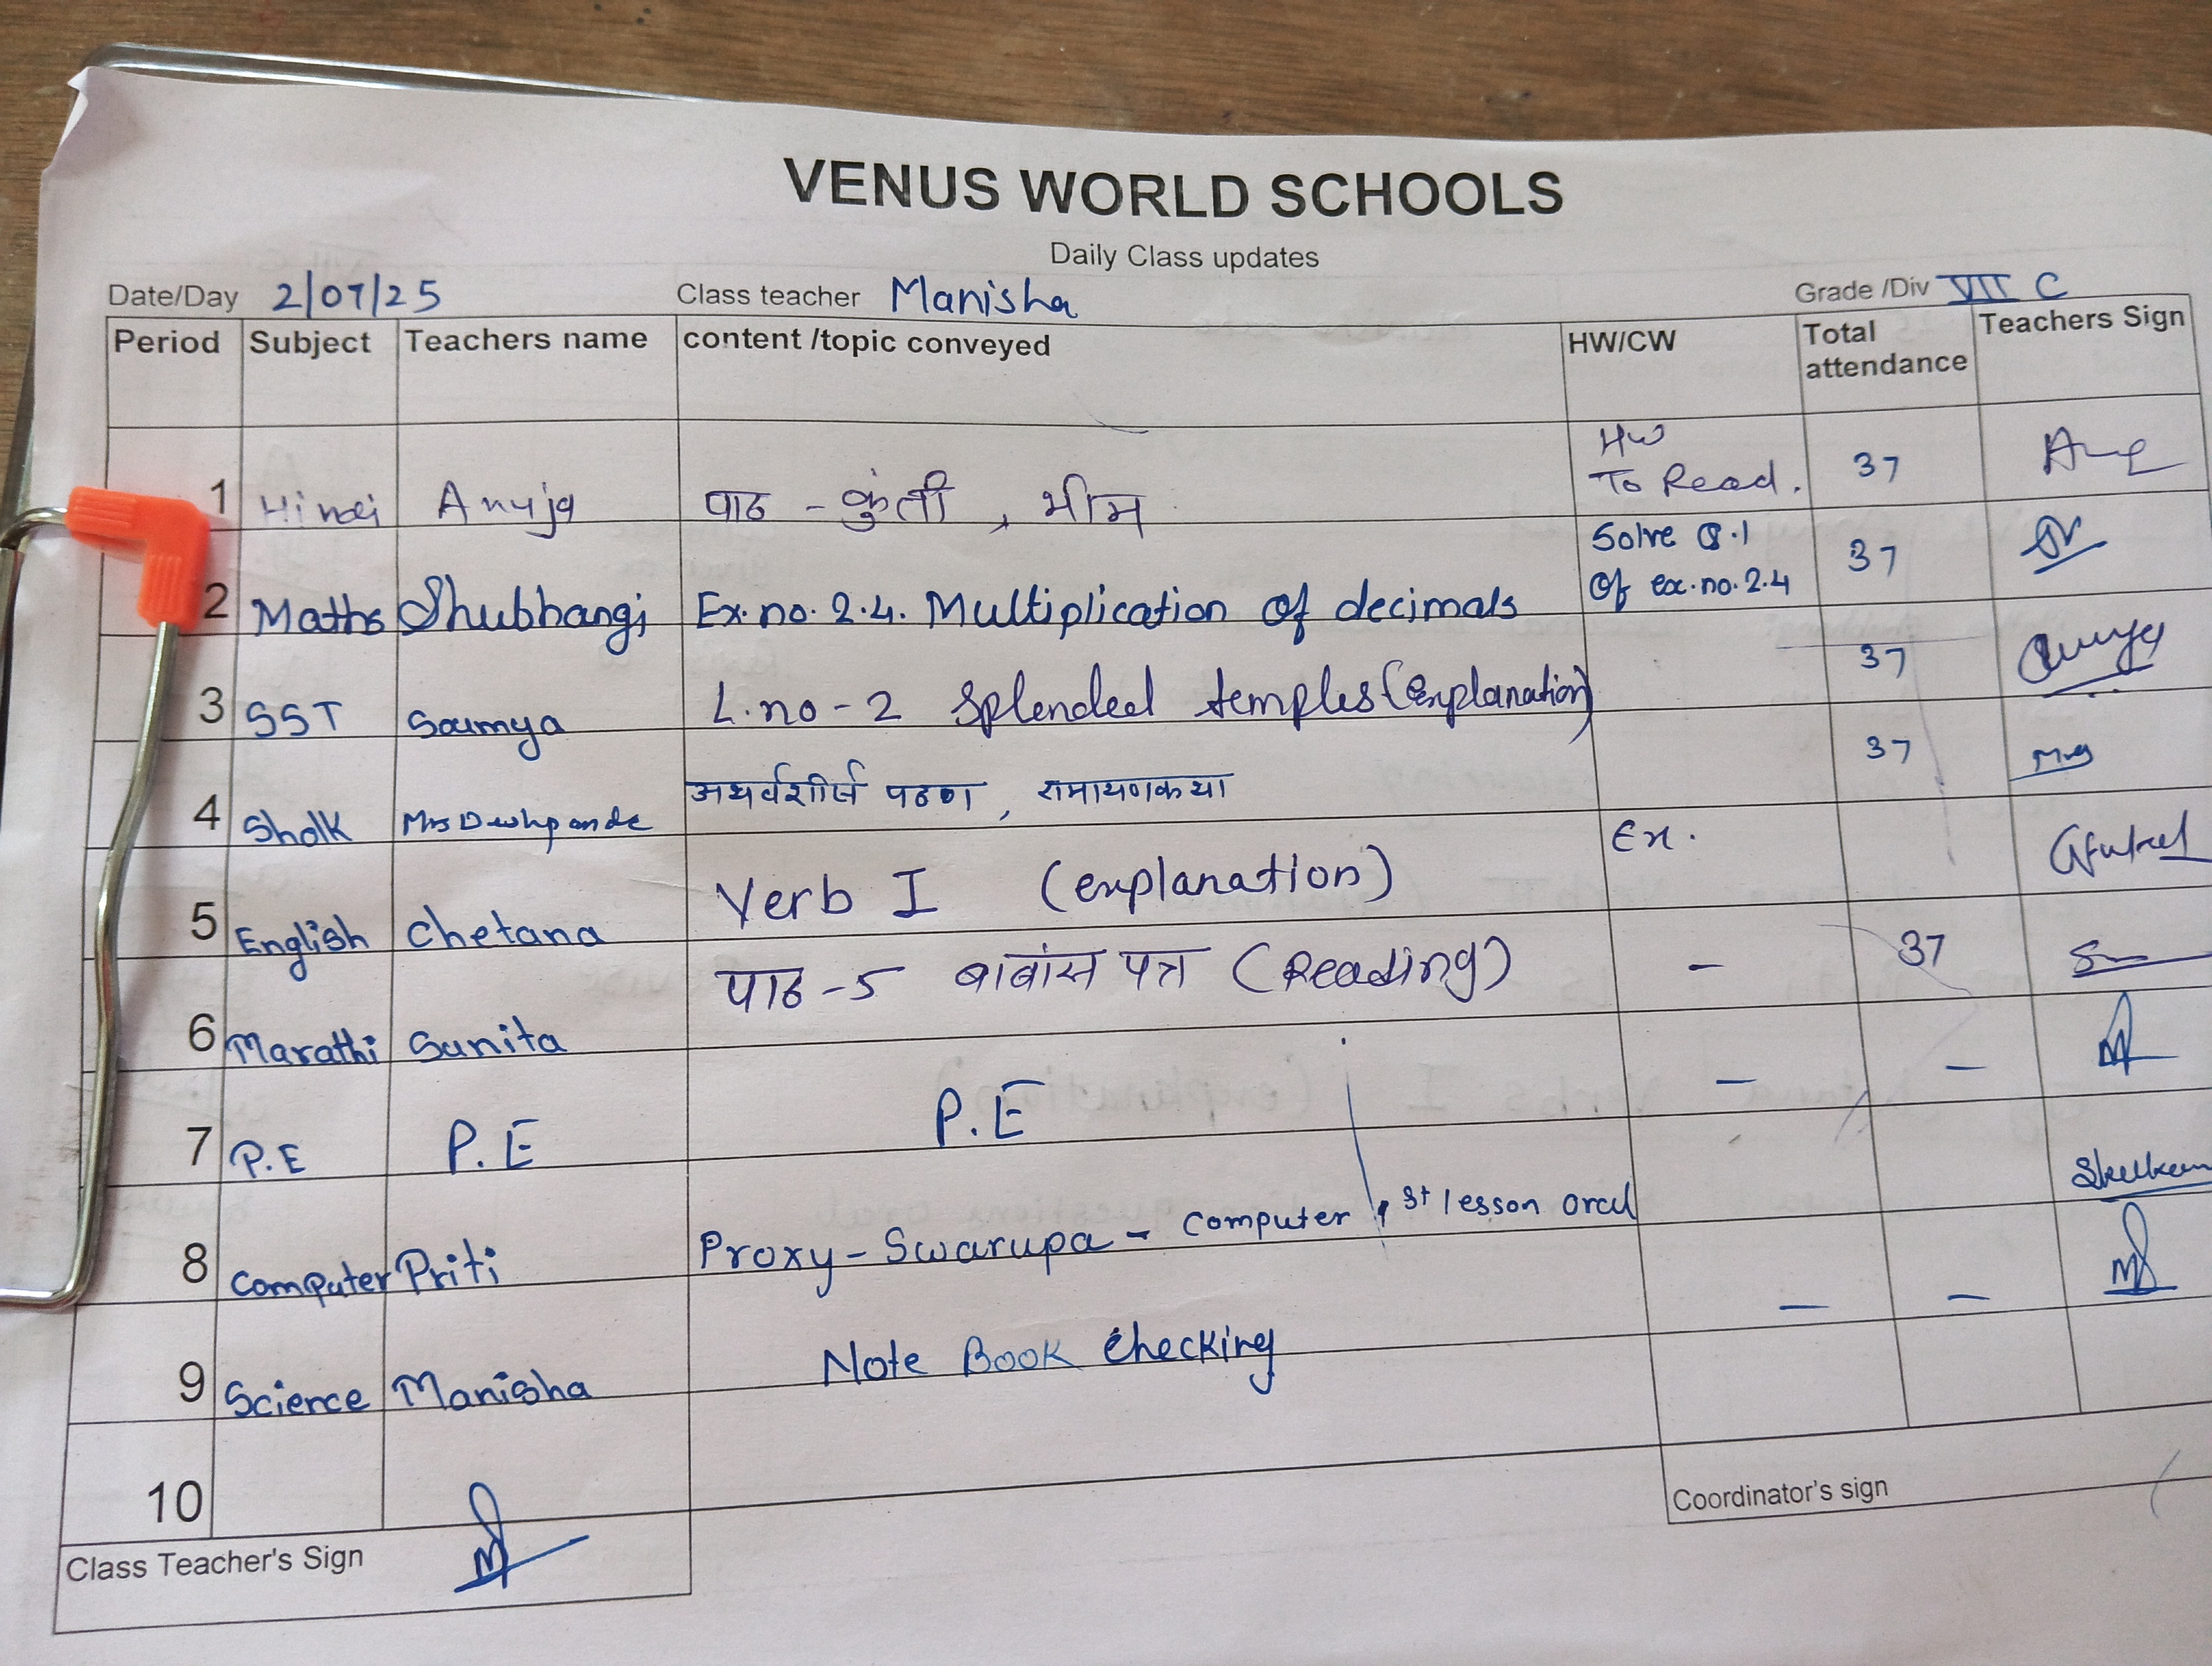 VENUS WORLD SCHOOLS
Daily Class updates
Date/Day 2/07/25 Class teacher Manisha Grade /Div VII C
Period Subject Teachers name content /topic conveyed HW/CW Total attendance Teachers Sign
1 Hindi Anuja पाठ - कुंती , भीम HW To Read. 37
2 Maths Shubhangi Ex. no. 2.4. Multiplication of decimals Solve Q.1 Of ex. no. 2.4 37
3 SST Soumya L.no - 2 Splended temples (Explanation) 37
4 Sholk Mrs Deshpande अथर्वशीर्ष पठण , रामायणकथा 37
5 English Chetana Verb I (explanation) Ex.
6 Marathi Sunita पाठ -5 बाबांस पत्र (Reading) - 37
7 P.E P.E P.E - -
8 Computer Priti Proxy - Swarupa - Computer 1st lesson oral
9 Science Manisha Note Book Checking - -
10
Class Teacher's Sign
Coordinator's sign